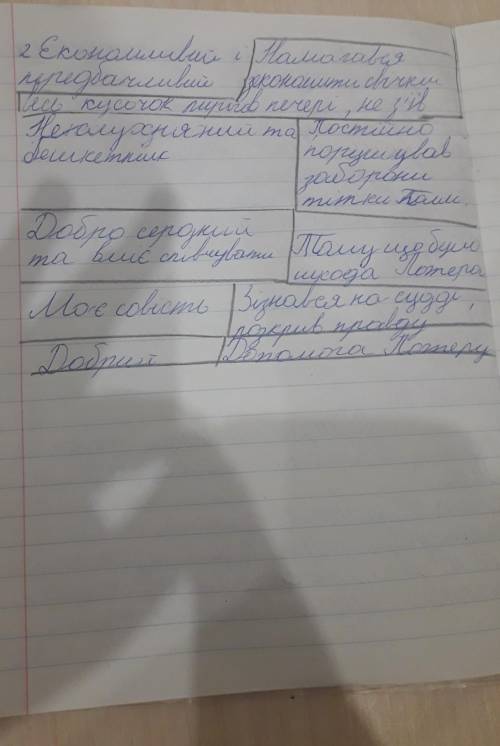 2 Економливий і Намагався
передбачливий зекономити свічки
весь кусочок пирога печері, не з'їв
Неслухняний та Постійно
бешкетник порушував
заборони
тітки Полли.
Добро сердний
та вміє співчувати Тому що було
шкода Потера
Має совість Зізнався на судді,
розкрив правду
Добрий Допомога Потеру